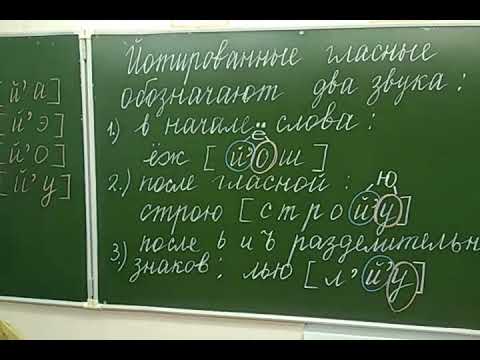 [й'а]
[й'э]
[й'о]
[й'у]
Йотированные гласные
обозначают два звука:
1.) в начале слова:
ё
ёж [й'ош]
2.) после гласной:
ю
строю [строй'у]
3.) после ь и ъ разделительн
знаков: лью [л'й'у]